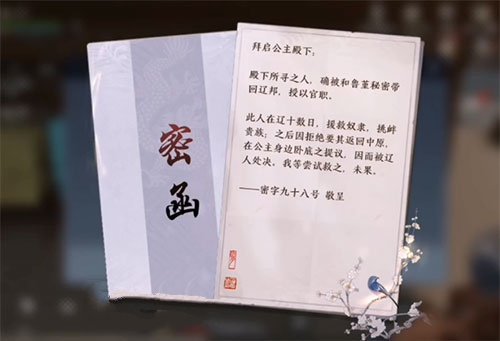 密函
拜启公主殿下:
殿下所寻之人,确被和鲁堇秘密带
回辽邦,授以官职。
此人在辽十数日,援救奴隶,挑衅
贵族,之后因拒绝要其返回中原,
在公主身边卧底之提议,因而被辽
人处决。我等尝试救之,未果。
——密字九十八号 敬呈